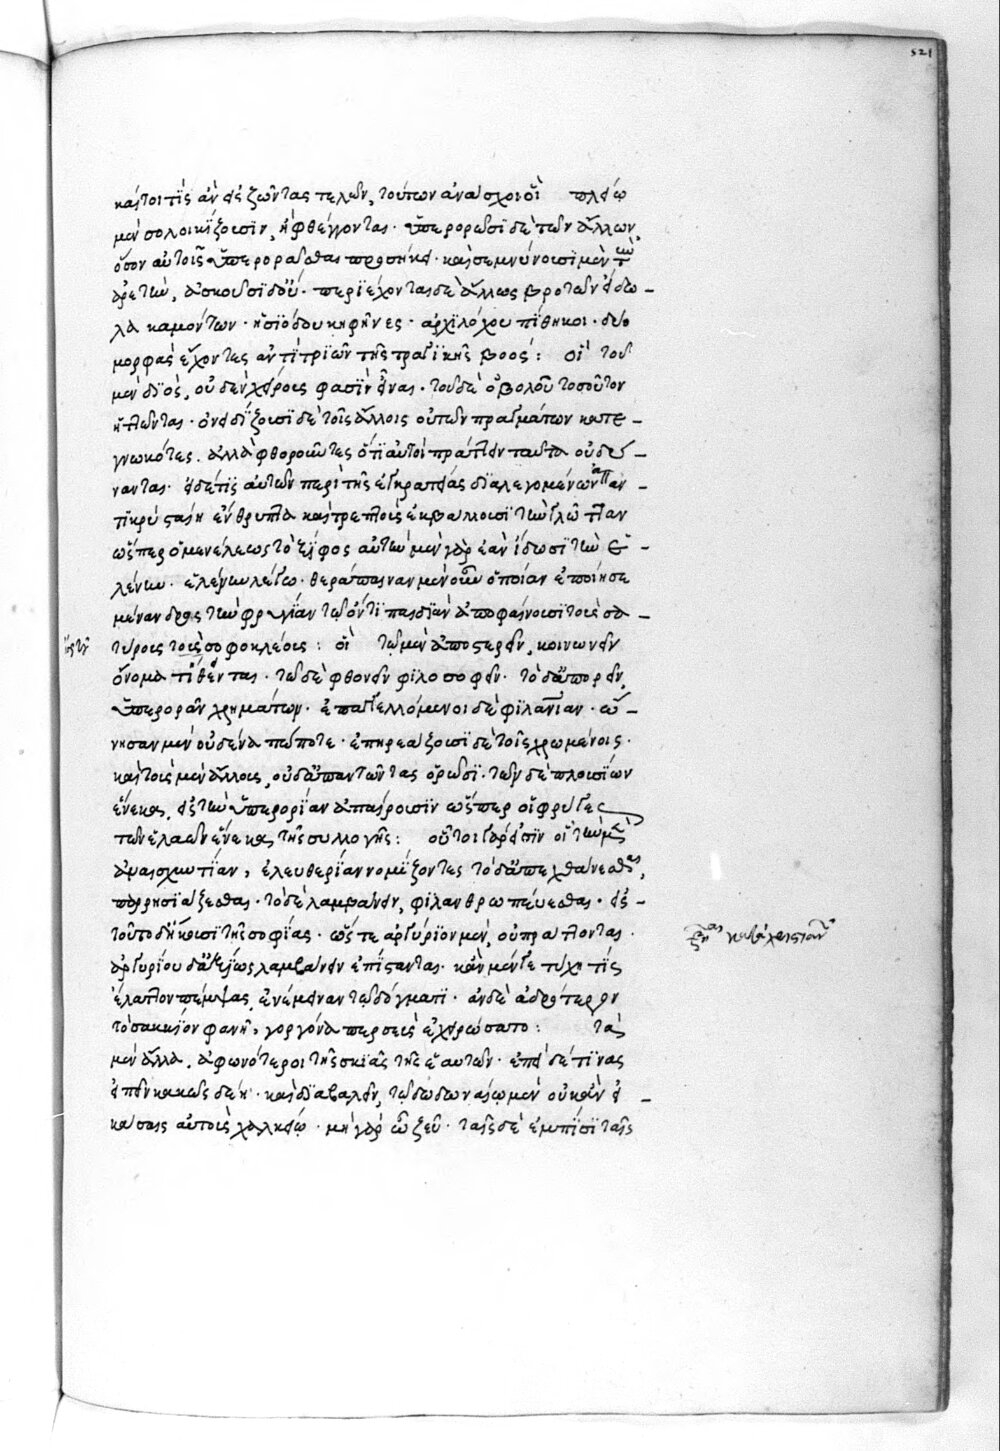 521
καίτοι τίς ἂν εἰς ζῶντας τελῶν, τούτων ἀνάσχοιτο οἳ πλείω
μὲν σολοικίζουσιν, ἢ φθέγγονται. ὑπερορῶσι δὲ τῶν ἄλλων,
ὅσον αὐτοῖς ὑπερορᾶσθαι προσήκει. καὶ σεμνύνουσι μὲν τὴν
ἀρετὴν, ἀσκοῦσι δ' οὔ. περιέρχονται δὲ ἄλλως βροτῶν εἴδω-
λα καμόντων. ἡσιόδου κηφῆνες. ἀρχιλόχου πίθηκοι. δύο
μορφὰς ἔχοντες ἀντὶ τριῶν τῆς τραγικῆς βοός: οἳ τοῦ
μὲν διὸς, οὐδὲν χείρους φασὶν εἶναι. τοῦ δὲ ὀβολοῦ τοσοῦτον
ἥττωνται. ὀνειδίζουσι δὲ τοῖς ἄλλοις οὐ τῶν πραγμάτων κατε-
γνωκότες. ἀλλὰ φθονοῦντες ὅτι αὐτοὶ πράττειν ταῦτα οὐ δύ-
νανται. εἰ δέ τις αὐτῶν περὶ τῆς ἐγκρατείας διαλεγομένων ἀπαν-
τικρὺ σταίη ἔνθρυπτα καὶ στρεπτοὺς ἐκβάλλουσι τὴν γλῶτταν
ὥσπερ ὁ μενέλεως τὸ ξίφος αὐτὴν μὲν γὰρ ἐὰν ἴδωσι τὴν ἑ-
λένην. ἑλένην λέγω. θεράπαιναν μὲν οὖν ὁποίαν ἐποίησε
μένανδρος τὴν φρυγίαν τῷ ὄντι παιδιὰν ἀποφαίνουσι τοὺς σα-
τύρους τοὺς σοφοκλέους: οἳ τῷ μὲν ἀποστερεῖν, κοινωνεῖν
ὄνομα τέθεινται. τῷ δὲ φθονεῖν φιλοσοφεῖν. τῷ δ' ἀπορεῖν,
ὑπερορᾶν χρημάτων. ἐπαγγελλόμενοι δὲ φιλανίαν. ὤ-
νησαν μὲν οὐδένα πώποτε. ἐπηρεάζουσι δὲ τοῖς χρωμένοις.
καὶ τοὺς μὲν ἄλλους, οὐδ' ἀπαντῶντας ὁρῶσι. τῶν δὲ πλουσίων
ἕνεκα, εἰς τὴν ὑπερορίαν ἀπαίρουσιν ὥσπερ οἱ φρύγες
τῶν ἐλαῶν ἕνεκα τῆς συλλογῆς: οὗτοι γάρ εἰσιν οἱ τὴν μὲν
ἀναισχυντίαν, ἐλευθερίαν νομίζοντες τὸ δ' ἀπεχθάνεσθαι,
παρρησιάζεσθαι. τὸ δὲ λαμβάνειν, φιλανθρωπεύεσθαι. εἰς
τοῦτο δ' ἥκουσι τῆς σοφίας. ὥστε ἀργύριον μὲν, οὐ πράττονται.
ἀργυρίου δ' ἄξια λαμβάνειν ἐπίστανται. κἂν μέν γε τύχῃ τίς
ἔλαττον πέμψας, ἐνέμειναν τῷ δόγματι. ἂν δὲ ἁδρότερον
τὸ σακκίον φανῇ, γοργόνα περσεὺς ἐχειρώσατο: τὰ
μὲν ἄλλα, ἀφωνότεροι τῆς σκιᾶς τῆς ἑαυτῶν. ἐπεὶ δέ τινας
εἰπεῖν κακῶς δέῃ. καὶ διαβαλεῖν, τῷ δωδωναίῳ μὲν οὐκ ἂν εἰ-
κάσαις αὐτοὺς χαλκείῳ. μὴ γὰρ ὦ ζεῦ. ταῖς δὲ ἐμπίσι ταῖς